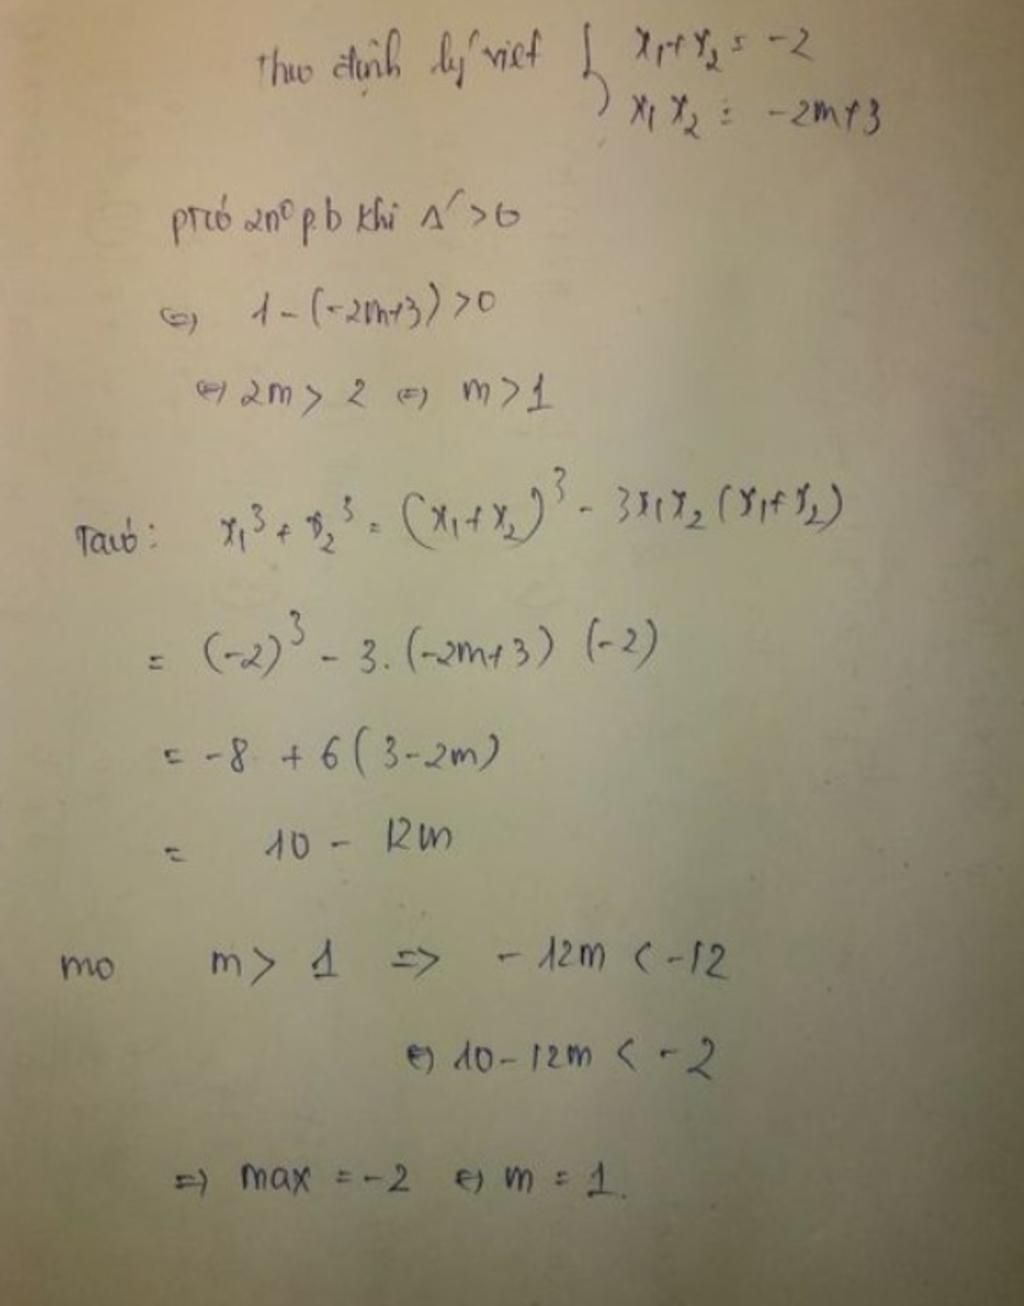 theo định lý viet { x₁+x₂ = -2
x₁ x₂ = -2m+3
ptcó 2n⁰ p.b khi Δ' > 0
⇔ 1-(-2m+3) > 0
⇔ 2m > 2 ⇔ m > 1
Tacó: x₁³ + x₂³ = (x₁+x₂)³ - 3x₁x₂ (x₁+x₂)
= (-2)³ - 3. (-2m+3) (-2)
= -8 + 6(3-2m)
= 10 - 12m
mo m > 1 => -12m < -12
⇔ 10-12m < -2
=> max = -2 ⇔ m = 1.